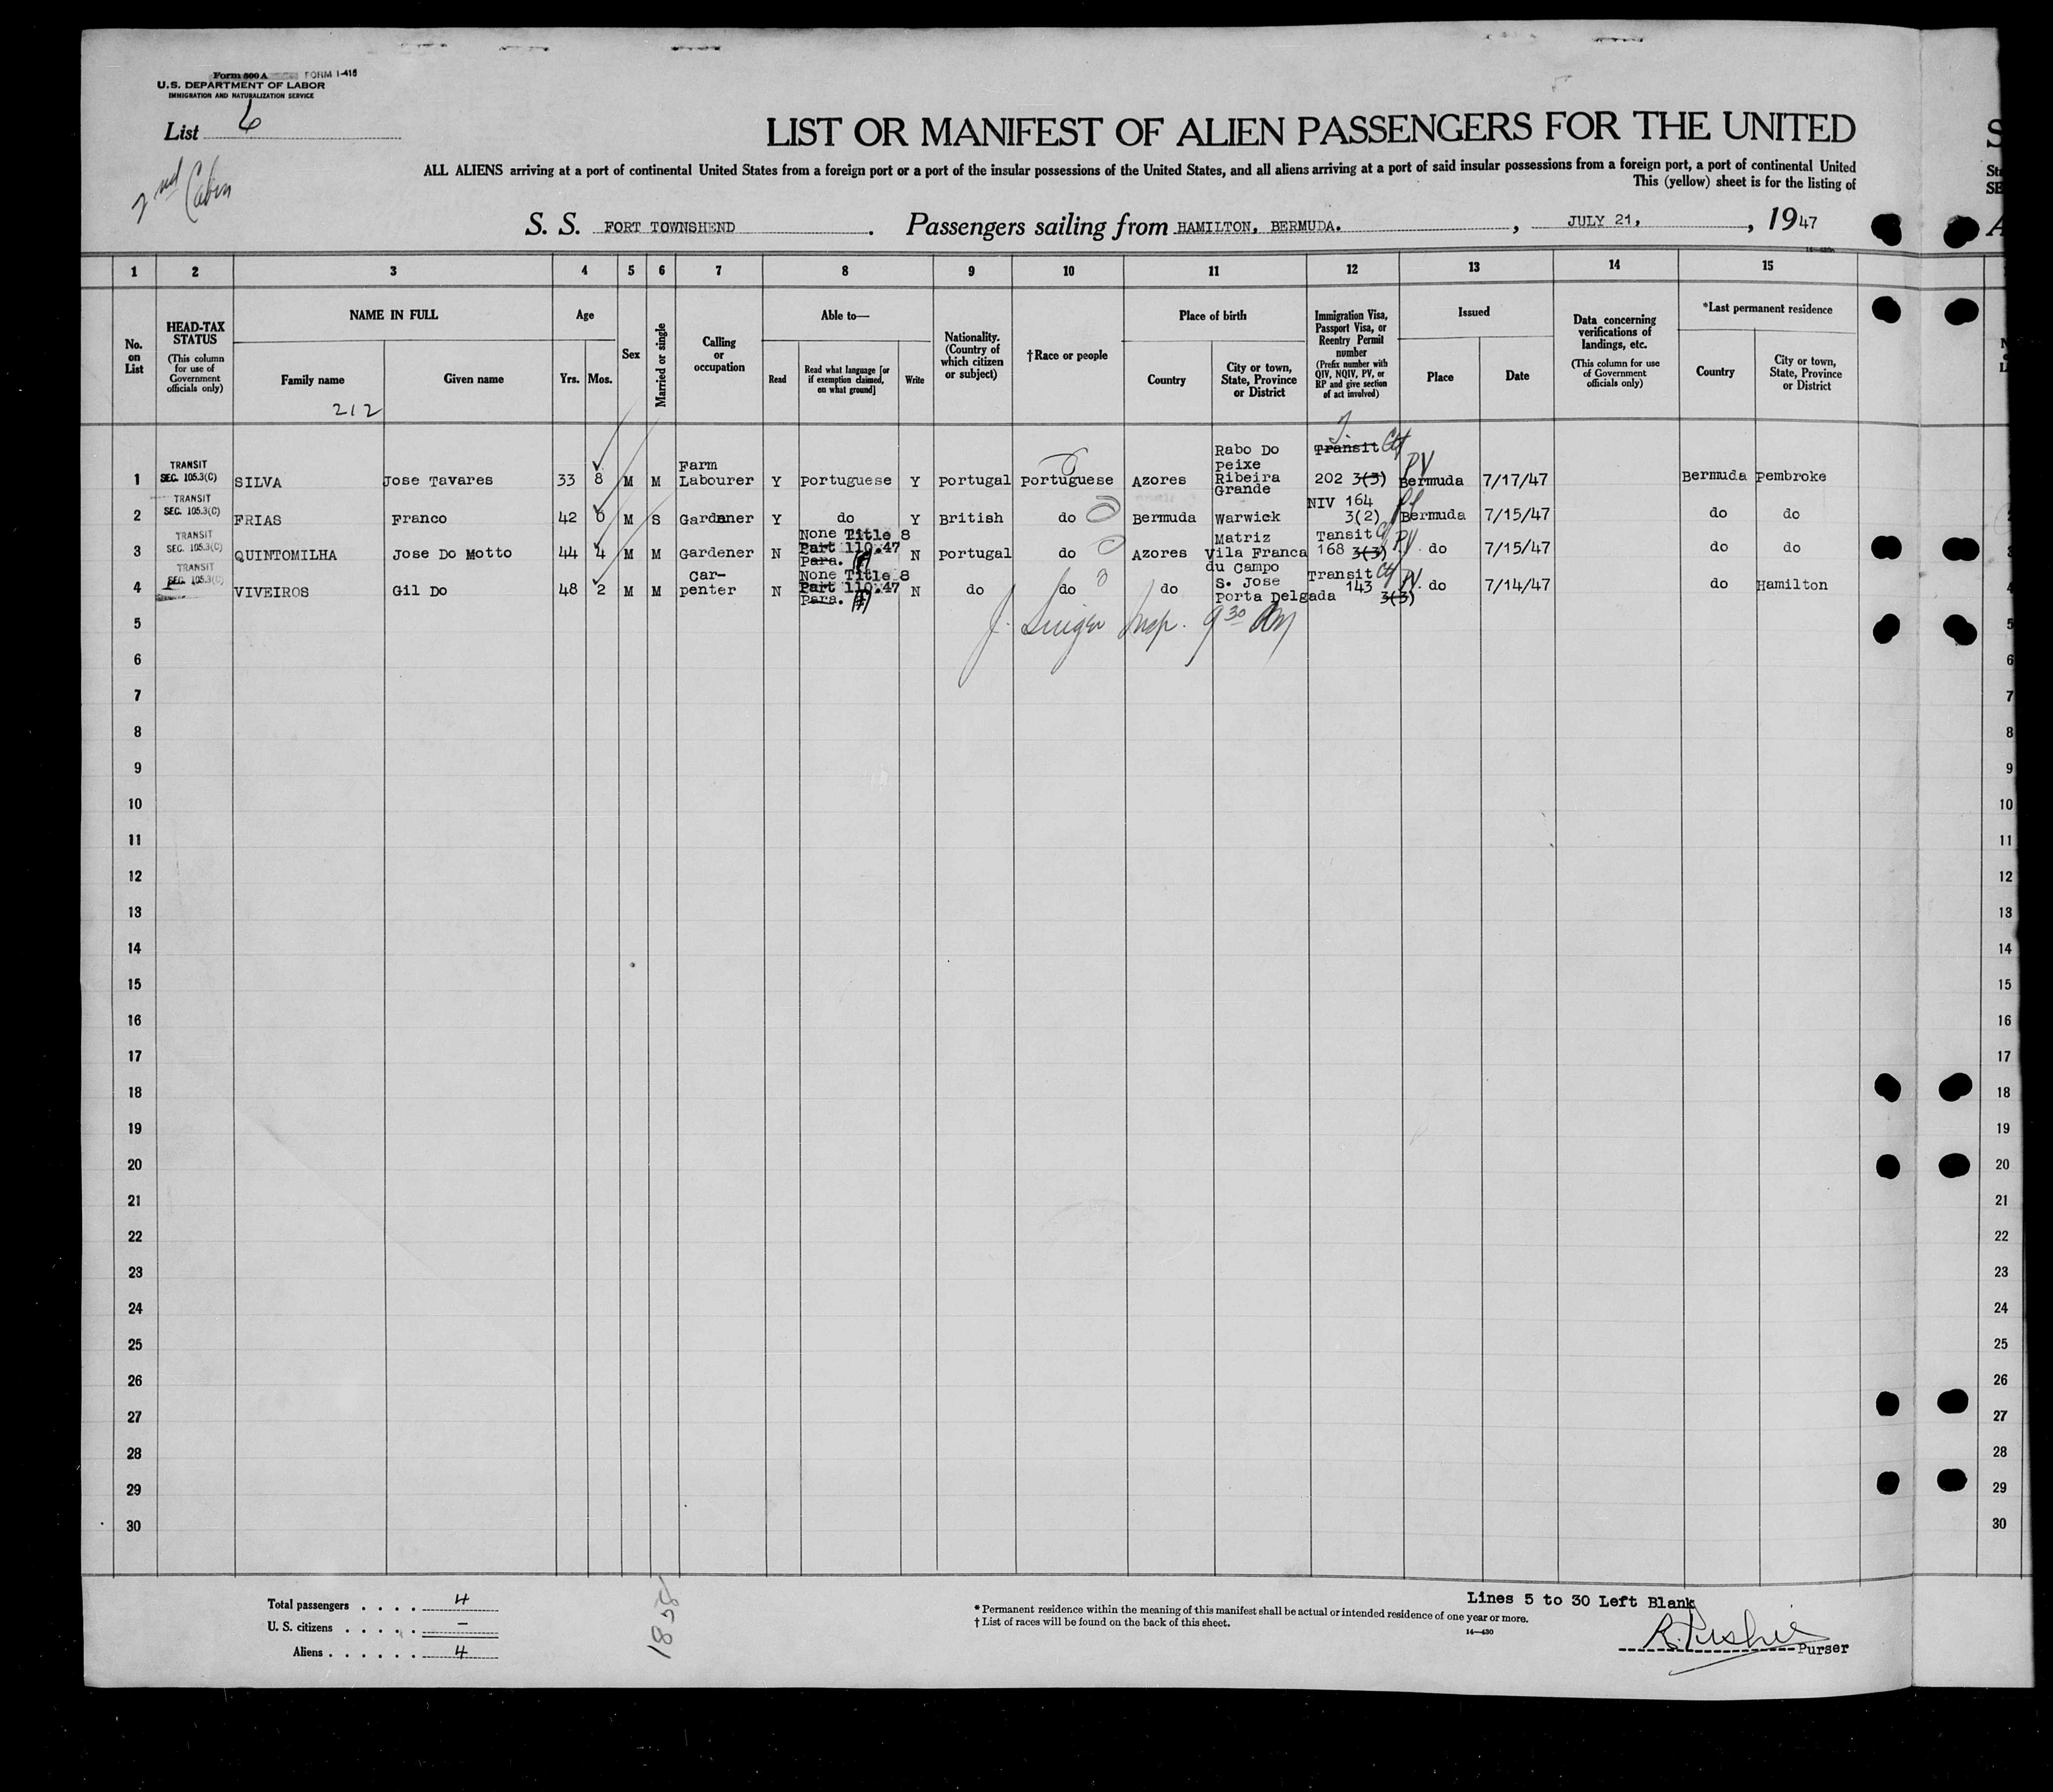 Form 500 A FORM I-415
U.S. DEPARTMENT OF LABOR
IMMIGRATION AND NATURALIZATION SERVICE
List 6
2nd Cabin
LIST OR MANIFEST OF ALIEN PASSENGERS FOR THE UNITED
ALL ALIENS arriving at a port of continental United States from a foreign port or a port of the insular possessions of the United States, and all aliens arriving at a port of said insular possessions from a foreign port, a port of continental United
This (yellow) sheet is for the listing of
S. S. FORT TOWNSHEND. Passengers sailing from HAMILTON, BERMUDA., JULY 21, , 1947
1 2 3 4 5 6 7 8 9 10 11 12 13 14 15
No. on List
HEAD-TAX STATUS (This column for use of Government officials only)
NAME IN FULL
Family name
Given name
212
Age
Yrs. Mos.
Sex
Married or single
Calling or occupation
Able to—
Read
Read what language [or if exemption claimed, on what ground]
Write
Nationality. (Country of which citizen or subject)
†Race or people
Place of birth
Country
City or town, State, Province or District
Immigration Visa, Passport Visa, or Reentry Permit number (Prefix number with QIV, NQIV, PV, or RP and give section of act involved)
Issued
Place
Date
Data concerning verifications of landings, etc. (This column for use of Government officials only)
*Last permanent residence
Country
City or town, State, Province or District
1 TRANSIT SEC. 105.3(C) SILVA Jose Tavares 33 8 M M Farm Labourer Y Portuguese Y Portugal Portuguese Azores Rabo Do Peixe Ribeira Grande Transit 202 3(3) PV Bermuda 7/17/47 Bermuda Pembroke
2 TRANSIT SEC. 105.3(C) FRIAS Franco 42 6 M S Gardener Y do Y British do Bermuda Warwick NIV 164 3(2) Bermuda 7/15/47 do do
3 TRANSIT SEC. 105.3(C) QUINTOMILHA Jose Do Motto 44 4 M M Gardener N None Title 8 Part 110.47 Para. N Portugal do Azores Matriz Vila Franca du Campo Tansit 168 3(3) PV do 7/15/47 do do
4 TRANSIT SEC. 105.3(C) VIVEIROS Gil Do 48 2 M M Car-penter N None Title 8 Part 110.47 Para. N do do do S. Jose Porta Delgada Transit 143 3(3) PV do 7/14/47 do Hamilton
5
6
7
8
9
10
11
12
13
14
15
16
17
18
19
20
21
22
23
24
25
26
27
28
29
30
Total passengers . . . . 4
U. S. citizens . . . . . –
Aliens . . . . . . 4
* Permanent residence within the meaning of this manifest shall be actual or intended residence of one year or more.
† List of races will be found on the back of this sheet.
14—430
Lines 5 to 30 Left Blank
Purser